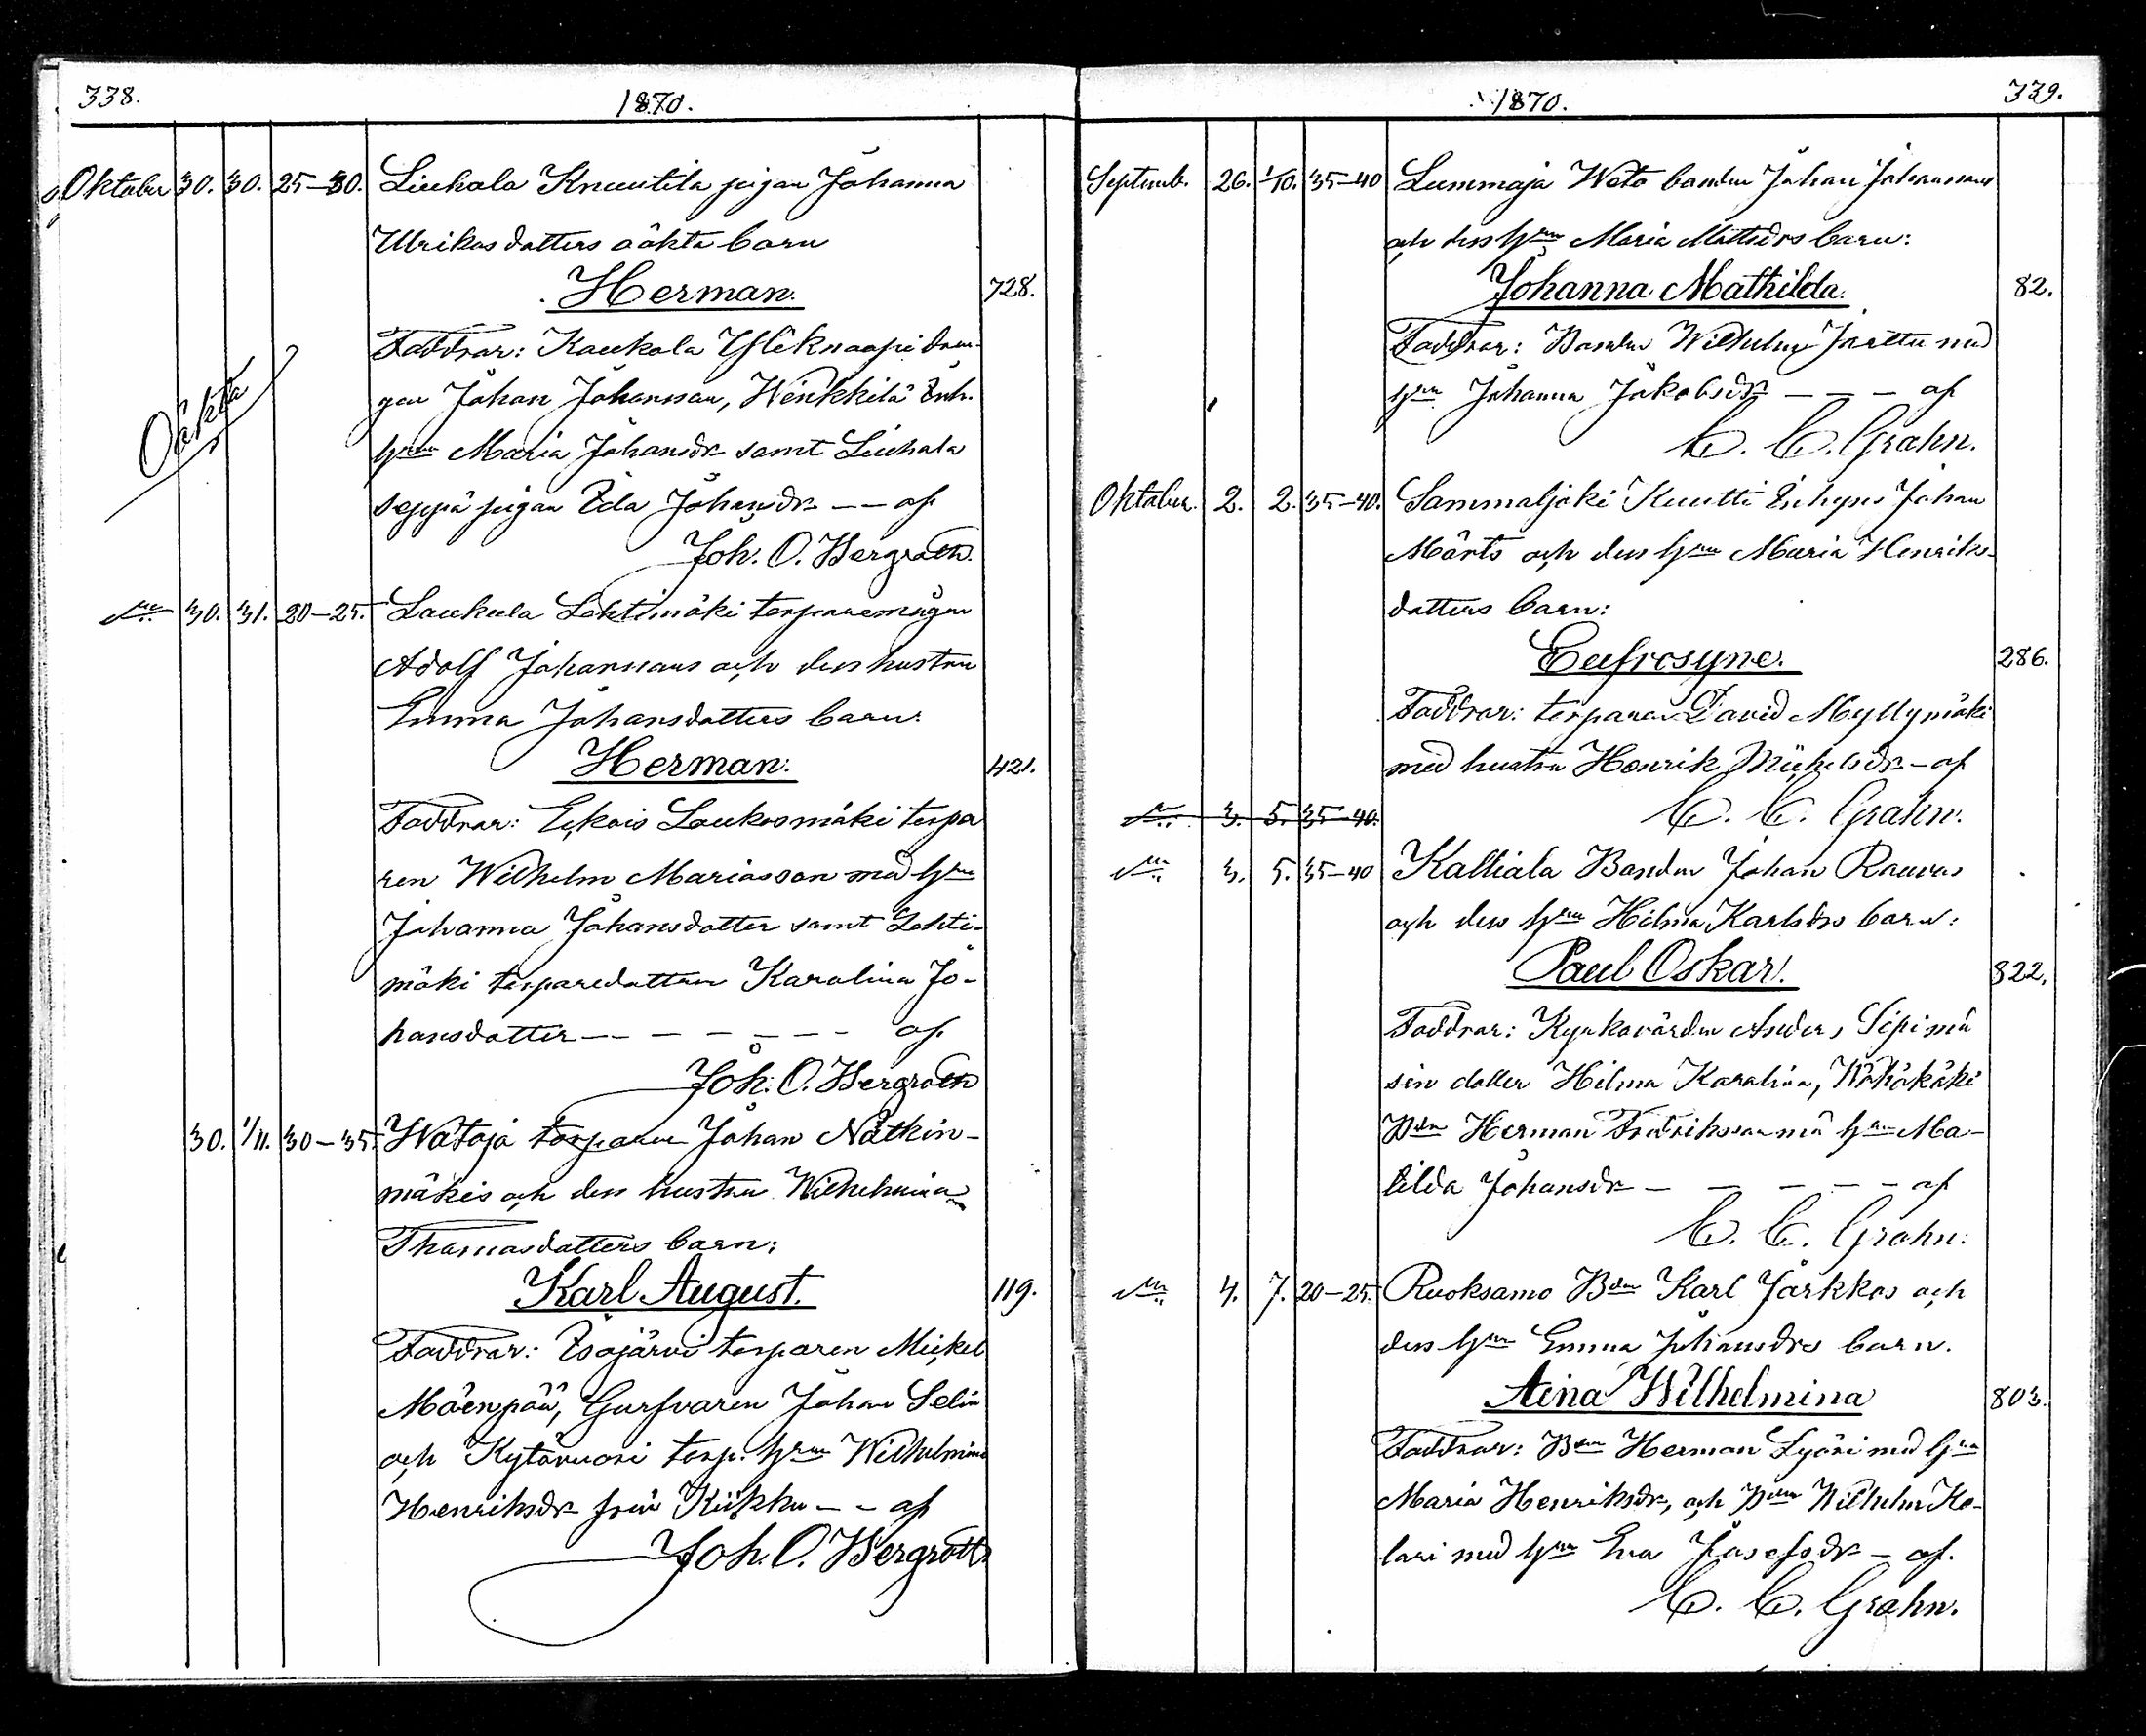 338.
1870.
Oktober 30. 30. 25–30. Liuhala Knuutila pigan Johanna
Ulrikasdotters oäkta barn
Herman. 728.
Faddrar: Kaukola Yliknaapi drän-
gen Johan Johansson, Heinkkilä Inh.
hrun Maria Johansdr samt Liuhala
Oäkta
seppä pigan Ida Johansdr — — af
Joh. O. Bergroth.
30. 31. 20–25. Laukula Lehtimäki torparemågen
Adolf Johanssons och dess hustru
Emma Johansdotters barn:
Herman. 421.
Faddrar: Ekois Laukosmäki torpa
ren Wilhelm Mariasson med hrun
Johanna Johansdotter samt Lehti-
mäki torparedottern Karolina Jo-
hansdotter — — — — — — af
Joh. O. Bergroth
30. 1/11. 30–35. Wataja torparen Johan Nätkin-
mäkis och dess hustru Wilhelmina
Thomasdotters barn:
Karl August. 119.
Faddrar: Isojärvi torparen Mickel
Mäenpää, Johan Selin
och Kytövuori torp. hrun Wilhelmina
Henriksdr från Kiikka — — af
Joh. O. Bergroth
1870.
339.
Septemb. 26. 1/10. 35–40 Lummaja Weto bonden Johan Johanssons
och dess hrun Maria Mattsdrs barn:
Johanna Mathilda. 82.
Faddrar: Bonden Wilhelm Jaættu med
hrun Johanna Jakobsdr — — — af
C. C. Grahn.
Oktober. 2. 2. 35–40. Sammaljoki Kuutti Inhyses Johan
Mårts och dess hrun Maria Henriks-
dotters barn:
Eufrosyne. 286.
Faddrar: torparen David Myllymäki
med hustru Henrik Michelsdr — af
3. 5. 35–40. C. C. Grahn.
3. 5. 35–40 Kaltiala Bonden Johan Rauvas
och dess hrun Hilma Karlsdrs barn:
Paul Oskar. 822.
Faddrar: Kyrkovärden Anders Sipi me
sin dotter Hilma Karolina, Wähäkäki
Bdn Herman Fredriksson me hrun Ma-
tilda Johansdr — — — — — af
C. C. Grahn.
4. 7. 20–25. Ruoksamo Bdn Karl Jarkkos och
dess hrun Emma Johansdrs barn.
Aina Wilhelmina 803.
Faddrar: Bdn Herman Lyöri med hrun
Maria Henriksdr, och Bdn Wilhelm Ko-
lari med hrun Eva Josefsdr — af.
C. C. Grahn.